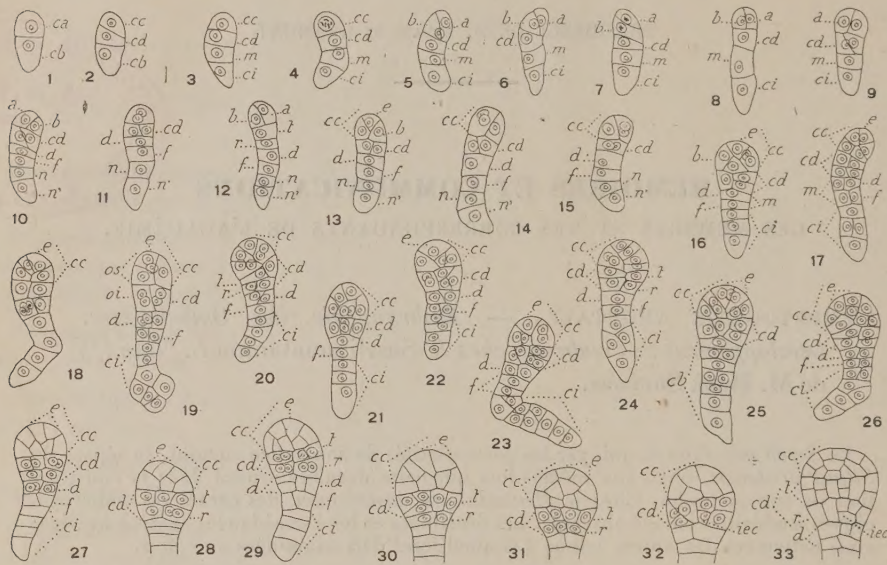 ca
cb
1
cc
cd
cb
2
cc
cd
m
ci
3
cc
cd
m
ci
4
b a
cd
m
ci
5
b a
cd
m
ci
6
b a
cd
m
ci
7
b a
cd
m
ci
8
a
cd
m
ci
9
a b
cd
d
f
n
n'
10
cd
d
f
n
n'
11
b a
l
r
d
f
n
n'
12
cc e
b
cd
d
f
n
n'
13
cc
cd
d
f
n
n'
14
cc
cd
d
f
n
n'
15
e
b cc
cd
d m
f
ci
16
e
cc
cd
m d
f
ci
17
e
cc
18
e
os cc
oi cd
d
f
ci
19
cc
cd
l
r d
f
ci
20
e
cc
cd
d
f
ci
21
e cc
cd
d
f
ci
22
e
cc
cd
d
f
ci
23
cc
cd l
r
d
f
ci
24
e
cc
cd
cb
25
e
cc
cd
f d
ci
26
e
cc
cd
d
f
ci
27
e
cc
cd l
r
28
e
cc
l
cd r
d
f
ci
29
e
cc
cd l
r
30
e
cc
cd l
r
31
e
cc
cd
iec
32
cc
l
r
d iec
33